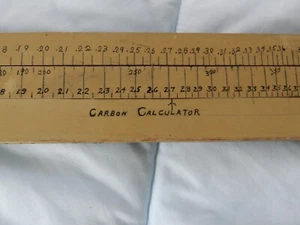 8 .19 .20 .21 .22 .23 .24 .25 .26 .27 .28 .29 .30 .31 .32 .33 .34 .35
190 200 250 300 350
8 .19 .20 2.1 2.2 2.3 2.4 2.5 2.6 2.7 2.8 2.9 3.0 3.1 3.2 3.3 3.4 3.5 3.6
CARBON CALCULATOR